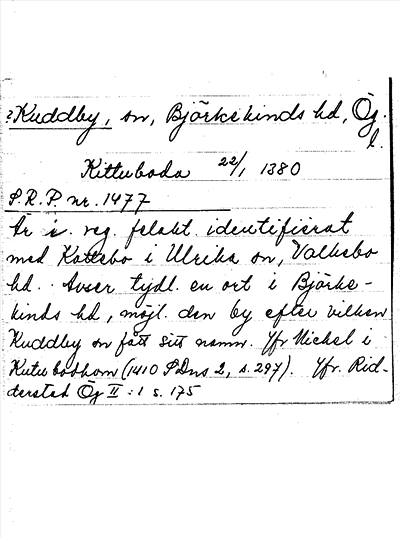 ?Kuddby, sn, Björkekinds hd, Ög.
l.
Kitteboda 22/1 1380
S.R.P. nr. 1477
Är i reg. felakt. identifierat
med Kättebo i Ulrika sn, Valkebo
hd. Avser tydl. en ort i Björke-
kinds hd, möjl. den by efter vilken
Kuddby sn fått sitt namn. Jfr Michel i
(1410 SDns 2, s. 297). Jfr. Rid-
derstad Ög II:1 s. 175